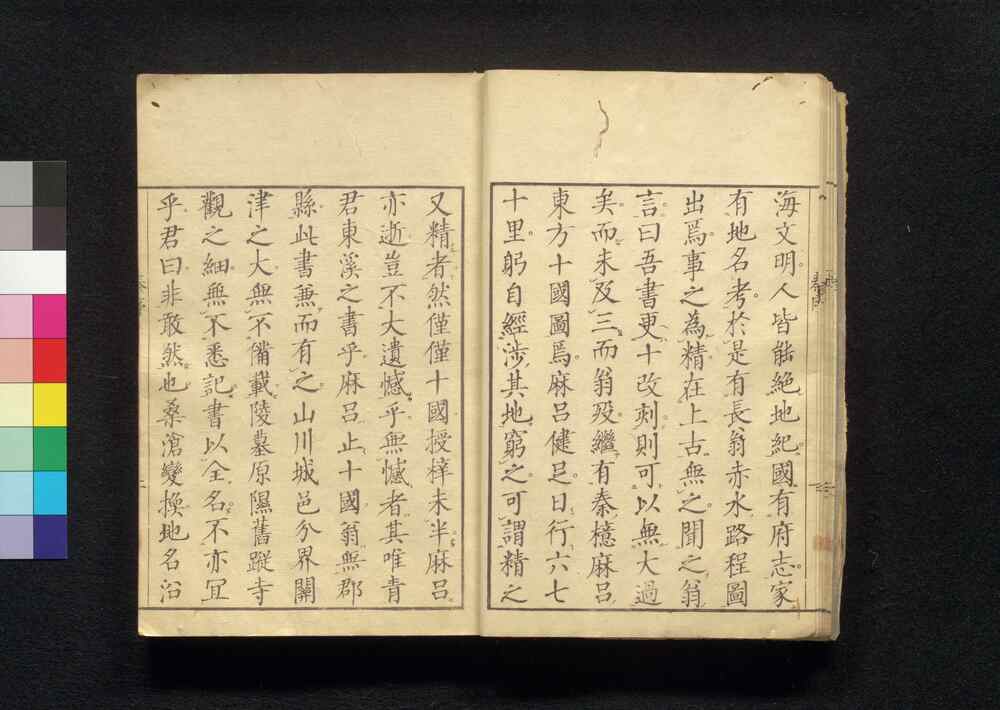 海文明人皆能絶地紀國有府志家
有地名考於是有長翁赤水路程圖
出焉事之為精在上古無之聞之翁
言曰吾書更十改刻則可以無大過
矣而未及三而翁歿繼有秦檍麻呂
東方十國圖焉麻呂健足日行六七
十里躬自經涉其地窮之可謂精之
又精者然僅僅十國授梓未半麻呂
亦逝豈不大遺憾乎無憾者其唯青
君東溪之書乎麻呂止十國翁無郡
縣此書兼而有之山川城邑分界關
津之大無不備載陵墓原隰舊蹤寺
觀之細無不悉記書以全名不亦冝
乎君曰非敢然也桑滄變換地名沿